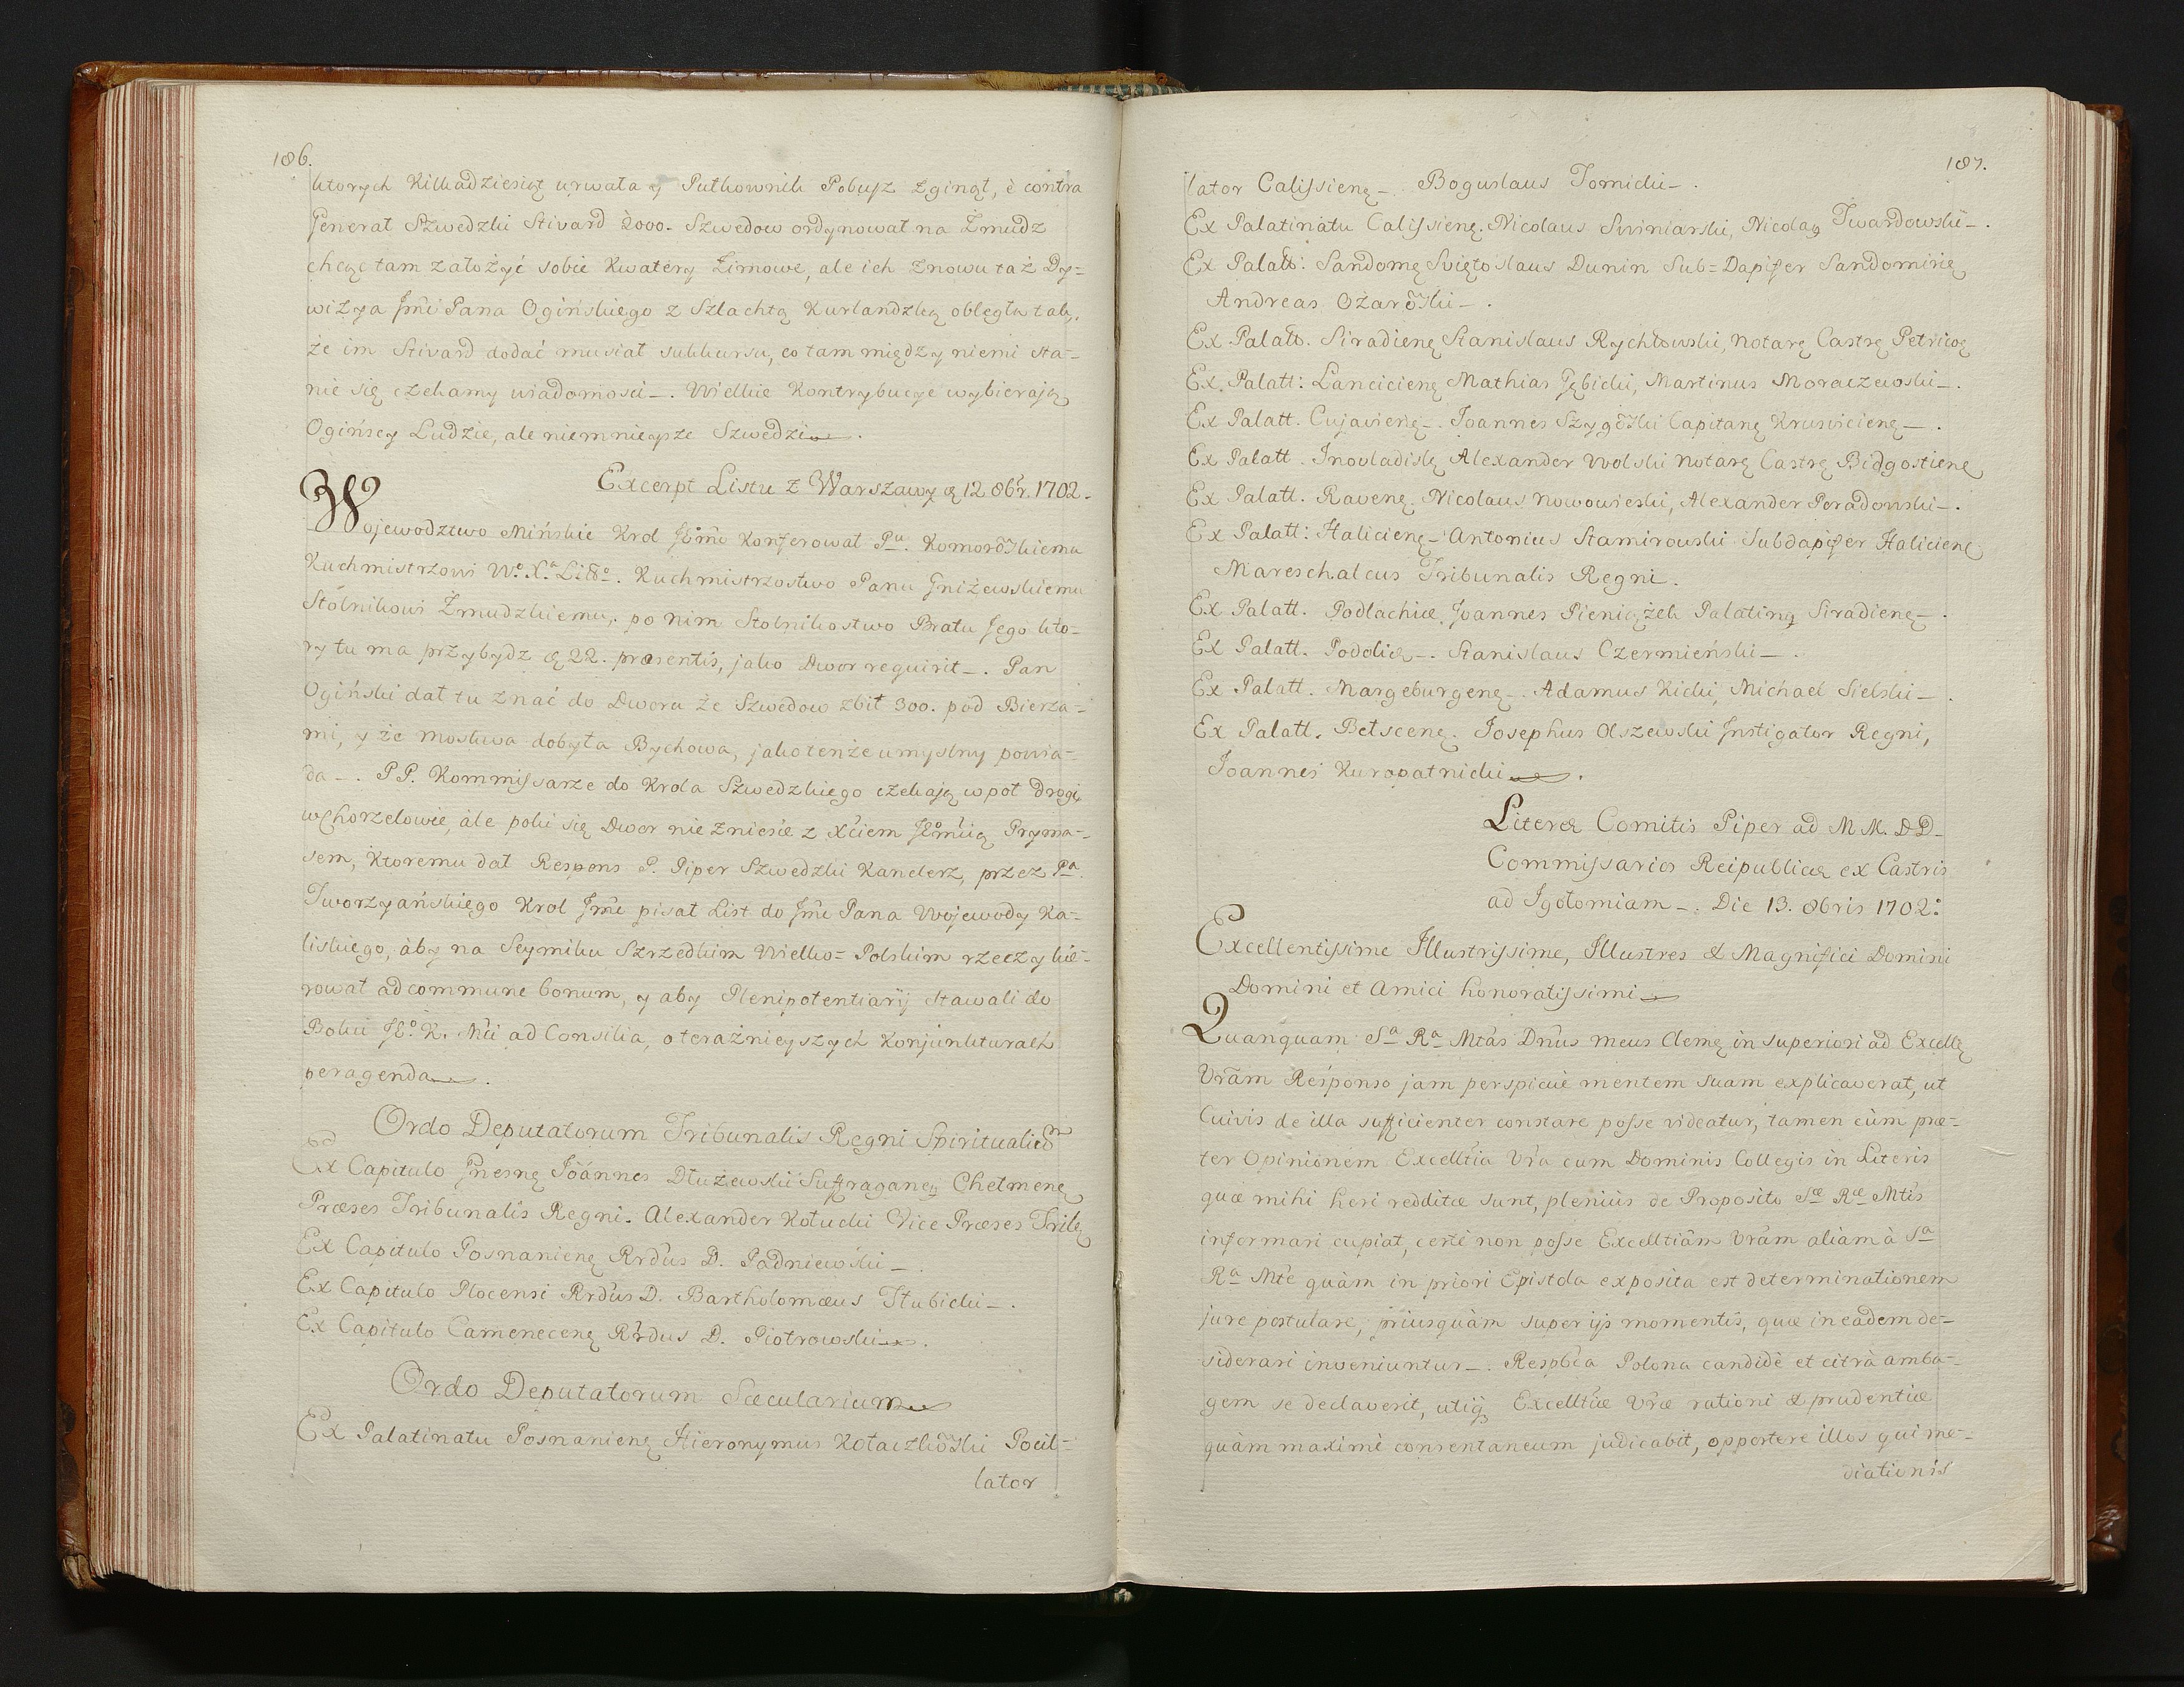 186.
ktorych kilkadziesiąt urwała y Pułkownik Pobusz zginął, è contra
Generał Szwedzki Stivard 2000. Szwedow ordynował na Żmudz
chcąc tam założyć sobie Kwatery Zimowe, ale ich znowu taż Dy=
wizya Jmći Pana Ogińskiego z Szlachtą Kurlandzką obległa tak,
że im Stivard dodać musiał sukkursu, co tam między niemi sta=
nie się czekamy wiadomości. Wielkie Kontrybucye wybierają
Ogińscy Ludzie, ale niemnieysze Szwedzi.
Excerpt Listu z Warszawy ą 12 8br. 1702.
Wojewodztwo Mińskie Krol Jḡomć konferował Pu. Komorowskiemu
Kuchmistrzowi Wo. Xa. Litto. Kuchmistrzostwo Panu Gniżewskiemu
Stolnikowi Żmudzkiemu, po nim Stolnikostwo Bratu Jego kto=
ry tu ma przybydz ą 22. præsentis, jako Dwor requirit. Pan
Ogiński dał tu znać do Dworu że Szwedow zbił 300. pod Bierża=
mi, y że Moskwa dobyła Bychowa, jako tenże umyslny powia=
da. PP. Kommissarze do Krola Szwedzkiego czekają wpoł drogi
w Chorzelowie, ale poki się Dwor nie zniesie z Xćiem Jḡomćią Pryma=
sem, ktoremu dał Respons P. Piper Szwedzki Kanclerz, przez Pa.
Tworzyańskiego Krol Jmć pisał List do Jmć Pana Wojewody Ka=
liskiego, áby na Seymiku Szrzedkim Wielko=Polskim rzeczy kie=
rował ad commune bonum, y aby Plenipotentiarij stawali do
Boku Jgo. K. Mći ad Consilia, o teraźnieyszych Konjunkturach
peragenda.
Ordo Deputatorum Tribunalis Regni Spiritualiũm
Ex Capitulo Gnesnę Joánnes Dłużewski Suffraganeꝯ Chełmenę
Præses Tribunalis Regni. Alexander Kołucki Vice Præses Tribę
Ex Capitulo Posnanienę Rrdus D. Padniewski.
Ex Capitulo Plocensi Rrdus D. Bartholomæus Słubicki.
Ex Capitulo Camenecenę Rrdus D. Piotrowski.
Ordo Deputatorum Sæcularium
Ex Palatinatu Posnanienę Hieronymus Kołaczkowski Pocil=
lator
187.
lator Calissienę. Boguslaus Tomicki.
Ex Palatinatu Calissienę. Nicolaus Swiniarski, Nicolaꝯ Twardowski.
Ex Palatt: Sandomę Swiętoslaus Dunin Sub=Dapifer Sandomirię
Andreas Ożarõski.
Ex Palatt. Siradienę Stanislaus Rychłowski, Notarę Castrę Petricoę
Ex Palatt: Lancicienę Mathias Gębicki, Martinus Moraczewski.
Ex Palatt. Cujavienę. Joannes Szygõski Capitanę Krusvicienę.
Ex Palatt. Inovladislę Alexander Wolski Notarę Castrę Bidgostienę
Ex Palatt. Ravenę. Nicolaus Nowowieski, Alexander Poradowski.
Ex Palatt: Halicienę. Antonius Stamirowski Subdapifer Halicienę
Mareschalcus Tribunalis Regni.
Ex Palatt. Podlachiæ Joannes Pieniążek Palatinꝯ Siradienę.
Ex Palatt. Podoliæ. Stanislaus Czermieński.
Ex Palatt. Margeburgenę. Adamus Kicki, Michael Sielski.
Ex Palatt. Betscenę. Josephus Olszewski Instigator Regni,
Joannes Kuropatnicki.
Literæ Comitis Piper ad M M. DD.
Commissarios Reipublicæ ex Castris
ad Igołomiam. Die 13. 8bris 1702.
Excellentissime Illustrissime, Illustres & Magnifici Domini
Domini et Amici honoratissimi
Quanquam Sa Ra Mtas Dnus meus Clemę in superiori ad Excellę
Vram Responso jam perspicuè mentem suam explicaverat, ut
cuivis de illa sufficienter constare posse videatur, tamen cùm præ=
ter Opinionem Excelltia Vra cum Dominis Collegis in Literis
quæ mihi heri redditæ sunt, pleniùs de Proposito Sæ Ræ Mtis
informari cupiat, certè non posse Excelltiam Vram aliam à Sa
Ra Mte quàm in priori Epistola exposita est determinationem
jure postulare, priusquàm super ijs momentis, quæ in eadem de=
siderari inveniuntur. Respbca Polona candidè et citrà amba=
gem se declaverit, utiqꝫ Excelltiæ Vræ rationi & prudentiæ
quàm maximè consentaneum judicabit, opportere illos qui me=
diationis